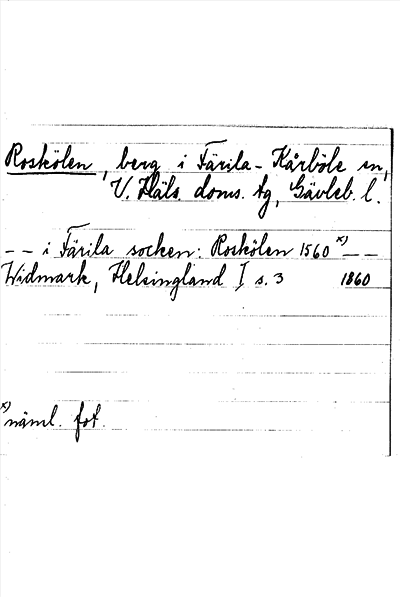 Roskölen, berg i Färila-Kårböle sn,
V. Häls. doms. tg, Gävleb. l.
-- i Färila socken: Roskölen 1560 x) --
Widmark, Helsingland I s. 3 1860
x) näml. fot.